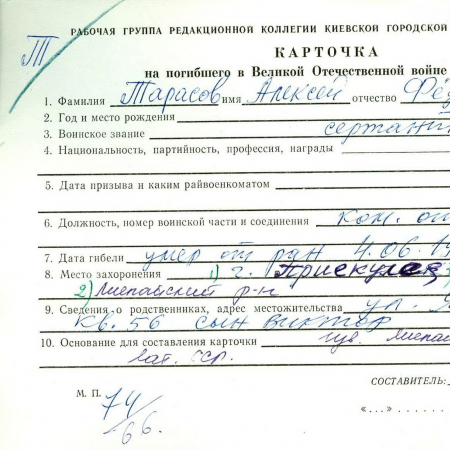 Т
РАБОЧАЯ ГРУППА РЕДАКЦИОННОЙ КОЛЛЕГИИ КИЕВСКОЙ ГОРОДСКОЙ
КАРТОЧКА
на погибшего в Великой Отечественной войне
1. Фамилия Тарасов имя Алексей отчество Фё
2. Год и место рождения
3. Воинское звание сержант
4. Национальность, партийность, профессия, награды
5. Дата призыва и каким райвоенкоматом
6. Должность, номер воинской части и соединения ком. от
7. Дата гибели умер от ран 4.06.19
8. Место захоронения 1) г. Прискулсе
2) Лиепайский р-н
9. Сведения о родственниках, адрес местожительства ул.
кв. 56 сын Виктор
10. Основание для составления карточки Лиепа
Лат. ССР.
СОСТАВИТЕЛЬ:
М. П.
74/66.
«...»